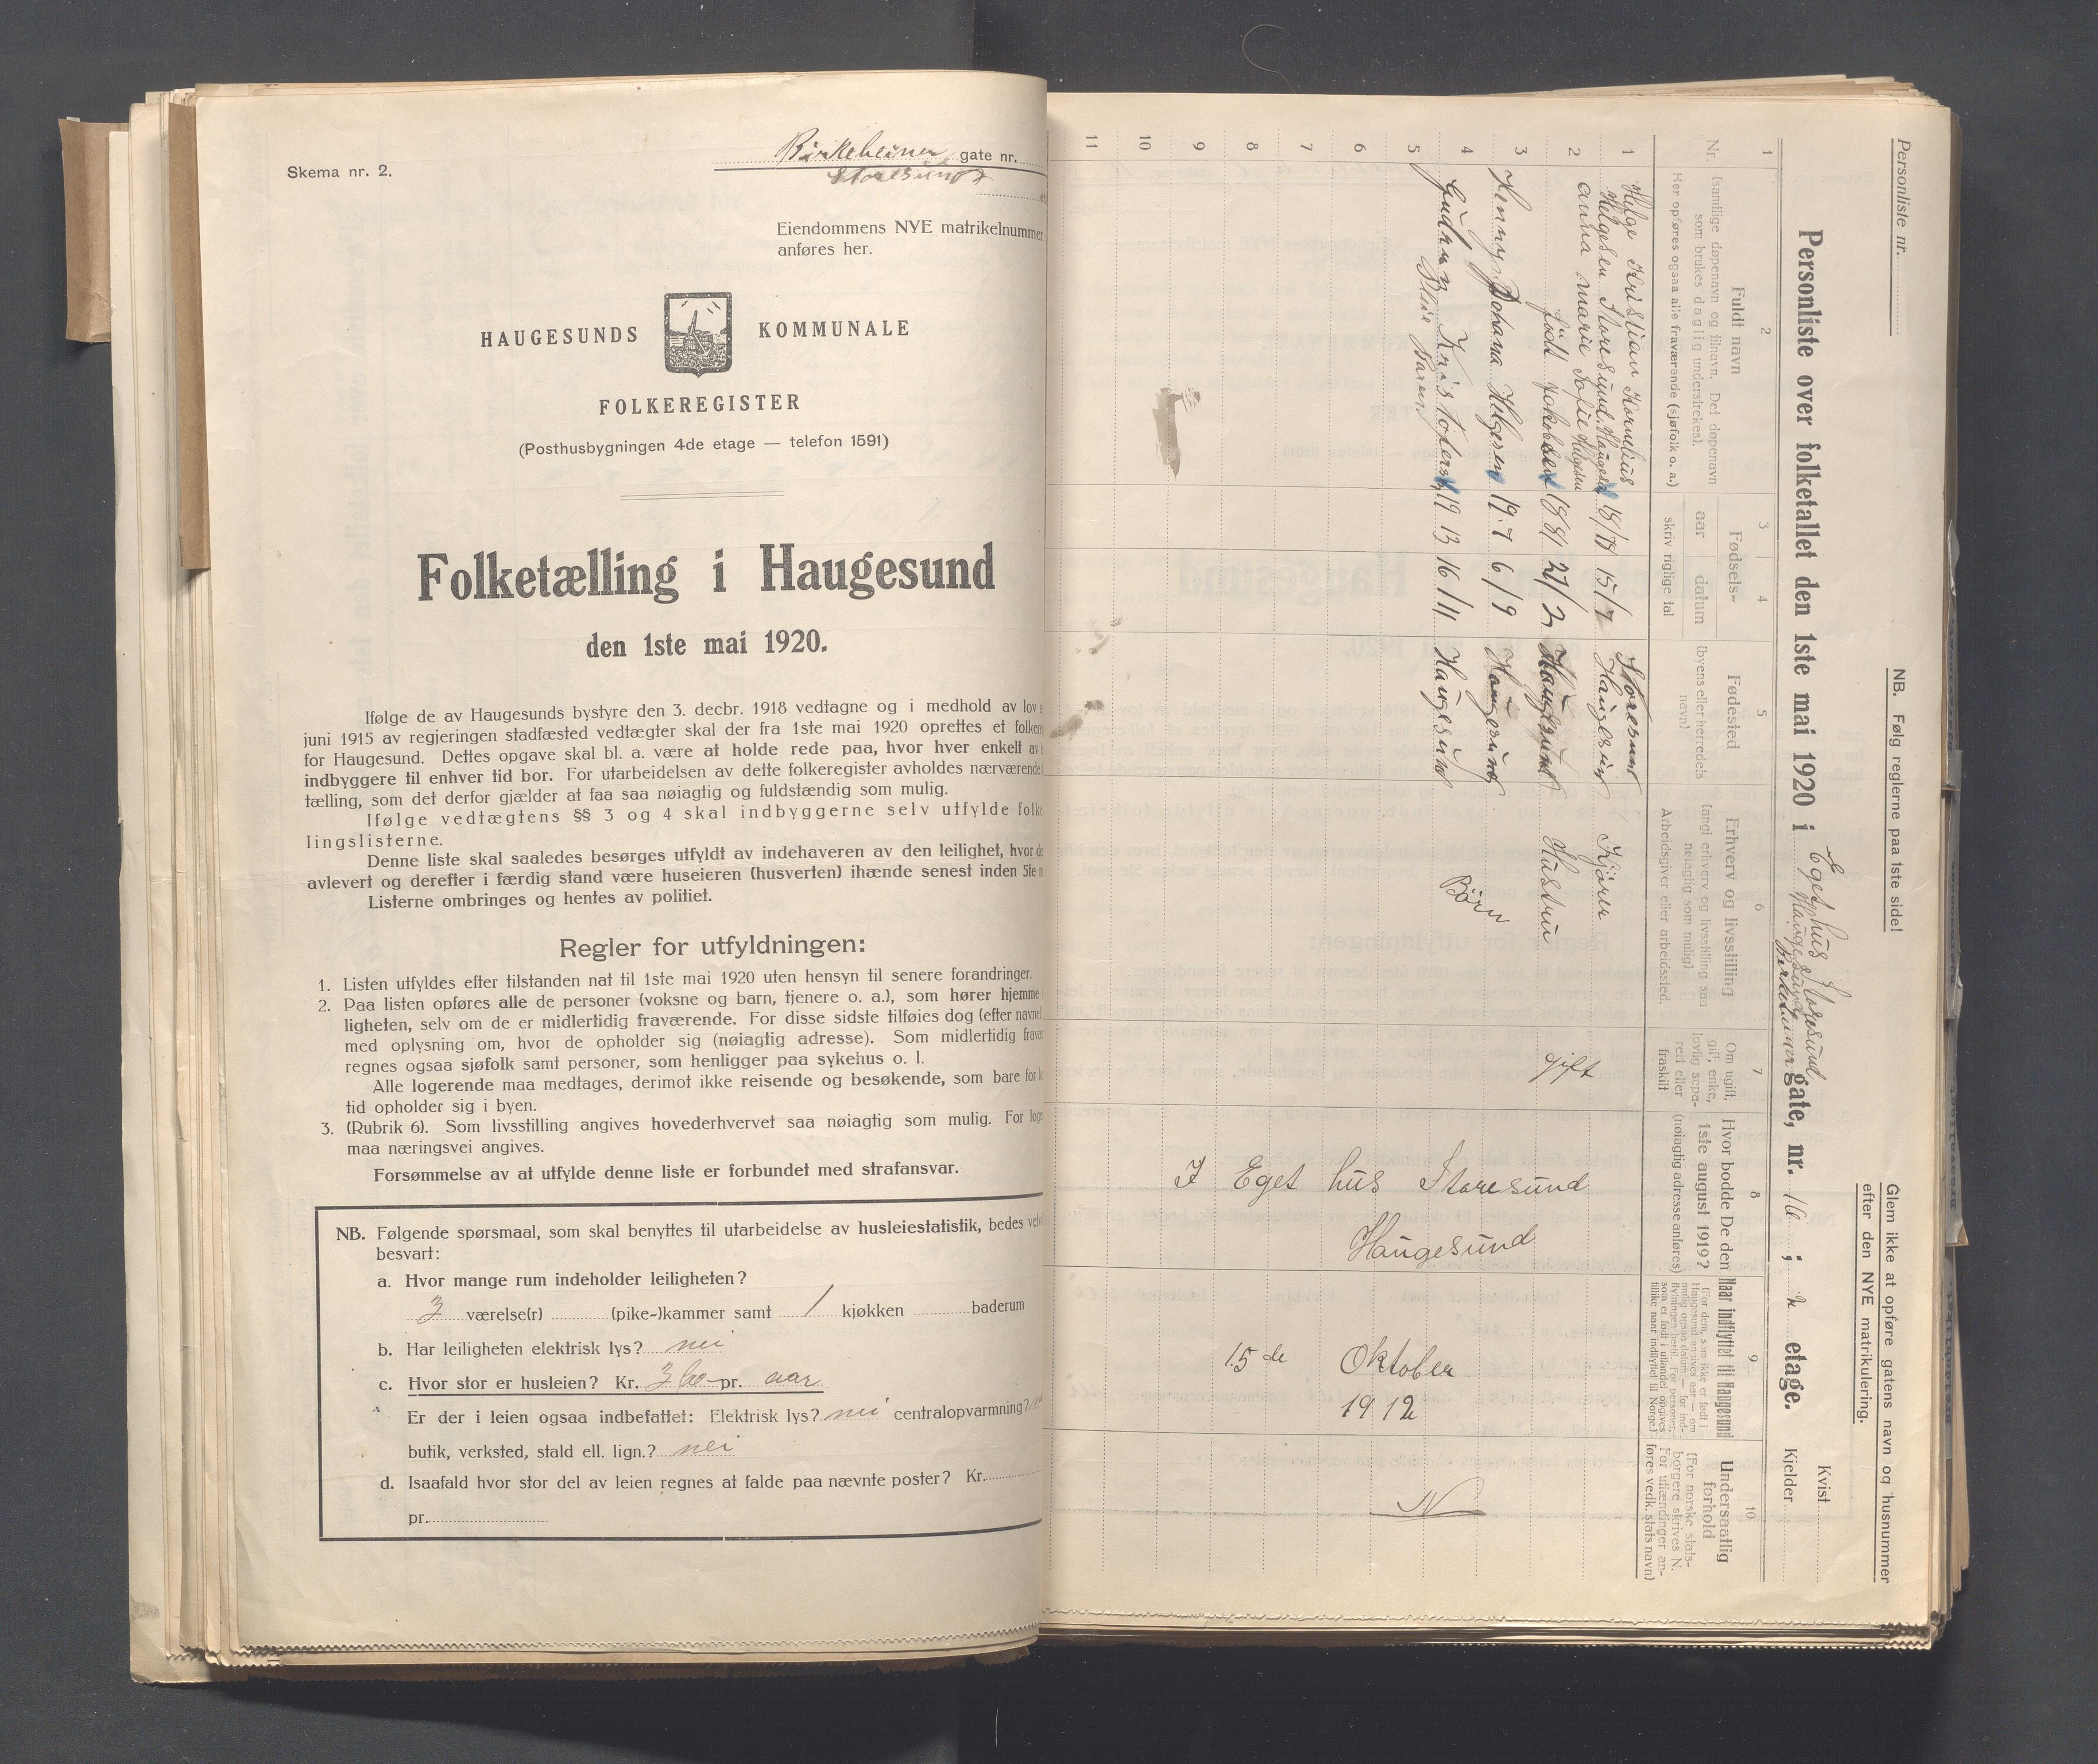 Skema nr. 2.
Birkebeiner gate nr.
Storesund
Eiendommens NYE matrikelnummer
anføres her.
HAUGESUNDS KOMMUNALE
FOLKEREGISTER
(Posthusbygningen 4de etage — telefon 1591)
Folketælling i Haugesund
den 1ste mai 1920.
Ifølge de av Haugesunds bystyre den 3. decbr. 1918 vedtagne og i medhold av lov a
juni 1915 av regjeringen stadfæsted vedtægter skal der fra 1ste mai 1920 oprettes et folkere
for Haugesund. Dettes opgave skal bl. a. være at holde rede paa, hvor hver enkelt av
indbyggere til enhver tid bor. For utarbeidelsen av dette folkeregister avholdes nærværende
tælling, som det derfor gjælder at faa saa nøiagtig og fuldstændig som mulig.
Ifølge vedtægtens §§ 3 og 4 skal indbyggerne selv utfylde folke
lingslisterne.
Denne liste skal saaledes besørges utfyldt av indehaveren av den leilighet, hvor de
avlevert og derefter i færdig stand være huseieren (husverten) ihænde senest inden 5te m
Listerne ombringes og hentes av politiet.
Regler for utfyldningen:
1. Listen utfyldes efter tilstanden nat til 1ste mai 1920 uten hensyn til senere forandringer.
2. Paa listen opføres alle de personer (voksne og barn, tjenere o. a.), som hører hjemme
ligheten, selv om de er midlertidig fraværende. For disse sidste tilføies dog (efter navnet
med oplysning om, hvor de opholder sig (nøiagtig adresse). Som midlertidig fravæ
regnes ogsaa sjøfolk samt personer, som henligger paa sykehus o. l.
Alle logerende maa medtages, derimot ikke reisende og besøkende, som bare for k
tid opholder sig i byen.
3. (Rubrik 6). Som livsstilling angives hovederhvervet saa nøiagtig som mulig. For loge
maa næringsvei angives.
Forsømmelse av at utfylde denne liste er forbundet med strafansvar.
NB. Følgende spørsmaal, som skal benyttes til utarbeidelse av husleiestatistik, bedes velvi
besvart:
a. Hvor mange rum indeholder leiligheten?
3 værelse(r) (pike-)kammer samt 1 kjøkken baderum
b. Har leiligheten elektrisk lys? nei
c. Hvor stor er husleien? Kr. 360 pr. aar
Er der i leien ogsaa indbefattet: Elektrisk lys? nei centralopvarmning?
butik, verksted, stald ell. lign.? nei
d. Isaafald hvor stor del av leien regnes at falde paa nævnte poster? Kr.
pr.
Personliste nr.
NB. Følg reglerne paa 1ste side!
Glem ikke at opføre gatens navn og husnummer
efter den NYE matrikulering.
Eget hus Storesund
Haugesund
Personliste over folketallet den 1ste mai 1920 i Birkebeiner gate, nr. 16 ; etage.
Kvist
Kjelder
1 2 3 4 5 6 7 8 9 10
Nr.
Fuldt navn
(samtlige døpenavn og tilnavn. Det døpenavn
som brukes daglig understrekes).
Her opføres ogsaa alle fraværende (sjøfolk o. a.)
Fødsels-
aar datum
skriv riglige tal
Fødested
(byens eller herredets
navn)
Erhverv og livsstilling
(angi erhverv og livsstilling saa
nøiagtig som mulig)
Arbeidsgiver eller arbeidssted.
Om ugift,
gift, enke,
lovlig sepa-
rert eller
fraskilt
Hvor bodde De den
1ste august 1919?
(nøiagtig adresse anføres)
Naar indflyttet til Haugesund
(For dem, som ikke er født i
Haugesund anføres aar — om
mulig ogsaa datum — for ind-
flytningen hertil. For personer,
som er født i utlandet opgives
tillike naar indflyttet til Norge)
Undersaatlig
forhold
(For norske stats-
borgere skrives N.
For utlændinger an-
føres vedk. stats navn)
1 Helge Kristian Kornelius Storesund
Helgesen Storesund. Haugesd 18/78 15/7 Haugesund Kjører
2 anna marie Sofie Helgesen
födt Jokobsen 1881 27/2 Haugesund Hustru gift
3 Henny Johana Helgesen 19.7 6/9 Haugesund
4 Gudrun Kristofersen 19 13 16/11 Haugesund Børn
Pleie Baren
5
6
7
8
9
10
11
I Eget hus Storesund
Haugesund
15 de Oktober
1912
N